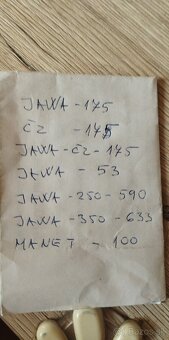 JAWA - 175
ČZ - 175
JAWA - ČZ - 175
JAWA - 53
JAWA - 250 - 590
JAWA - 350 - 633
MANET - 100